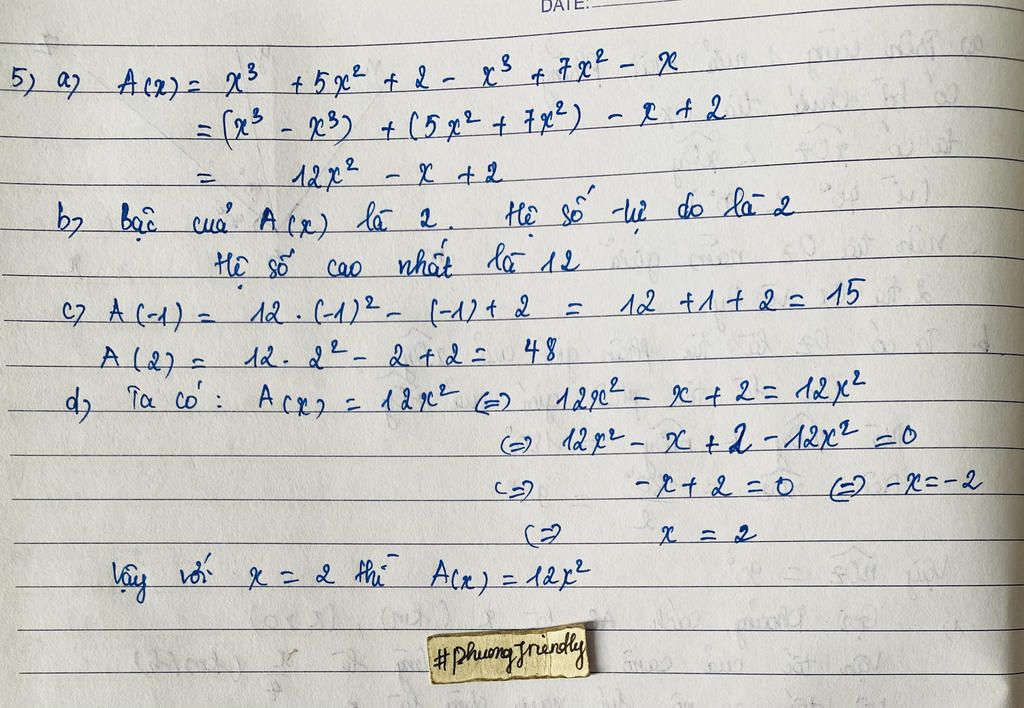 DATE:
5) a) A(x) = x³ + 5x² + 2 - x³ + 7x² - x
= (x³ - x³) + (5x² + 7x²) - x + 2
= 12x² - x + 2
b) Bậc của A(x) là 2. Hệ số tự do là 2
Hệ số cao nhất là 12
c) A(-1) = 12 . (-1)² - (-1) + 2 = 12 + 1 + 2 = 15
A(2) = 12 . 2² - 2 + 2 = 48
d) Ta có: A(x) = 12x² (=) 12x² - x + 2 = 12x²
(=) 12x² - x + 2 - 12x² = 0
(=) - x + 2 = 0 (=) -x = -2
(=) x = 2
Vậy với x = 2 thì A(x) = 12x²
#phuongfriendly